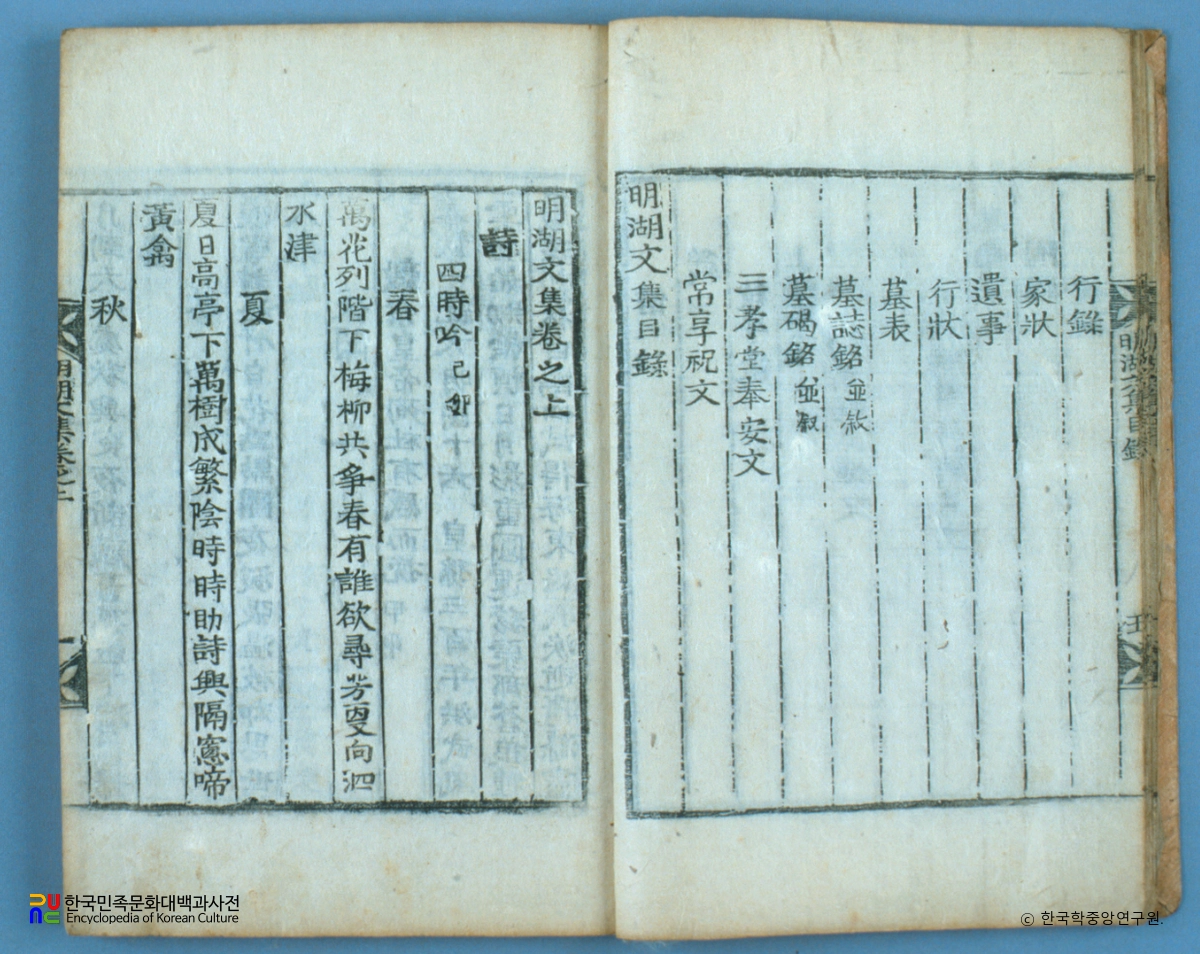 行錄
家狀
遺事
行狀
墓表
墓誌銘 並敘
墓碣銘 並敘
三孝堂奉安文
常享祝文
明湖文集目錄
明湖文集目錄
五
明湖文集卷之上
詩
四時吟 己卯
春
萬花列階下梅柳共爭春有誰欲尋芳更向泗
水津
夏
夏日高亭下萬樹成繁陰時時助詩興隔窓啼
黃禽
秋
한국민족문화대백과사전
Encyclopedia of Korean Culture
© 한국학중앙연구원.